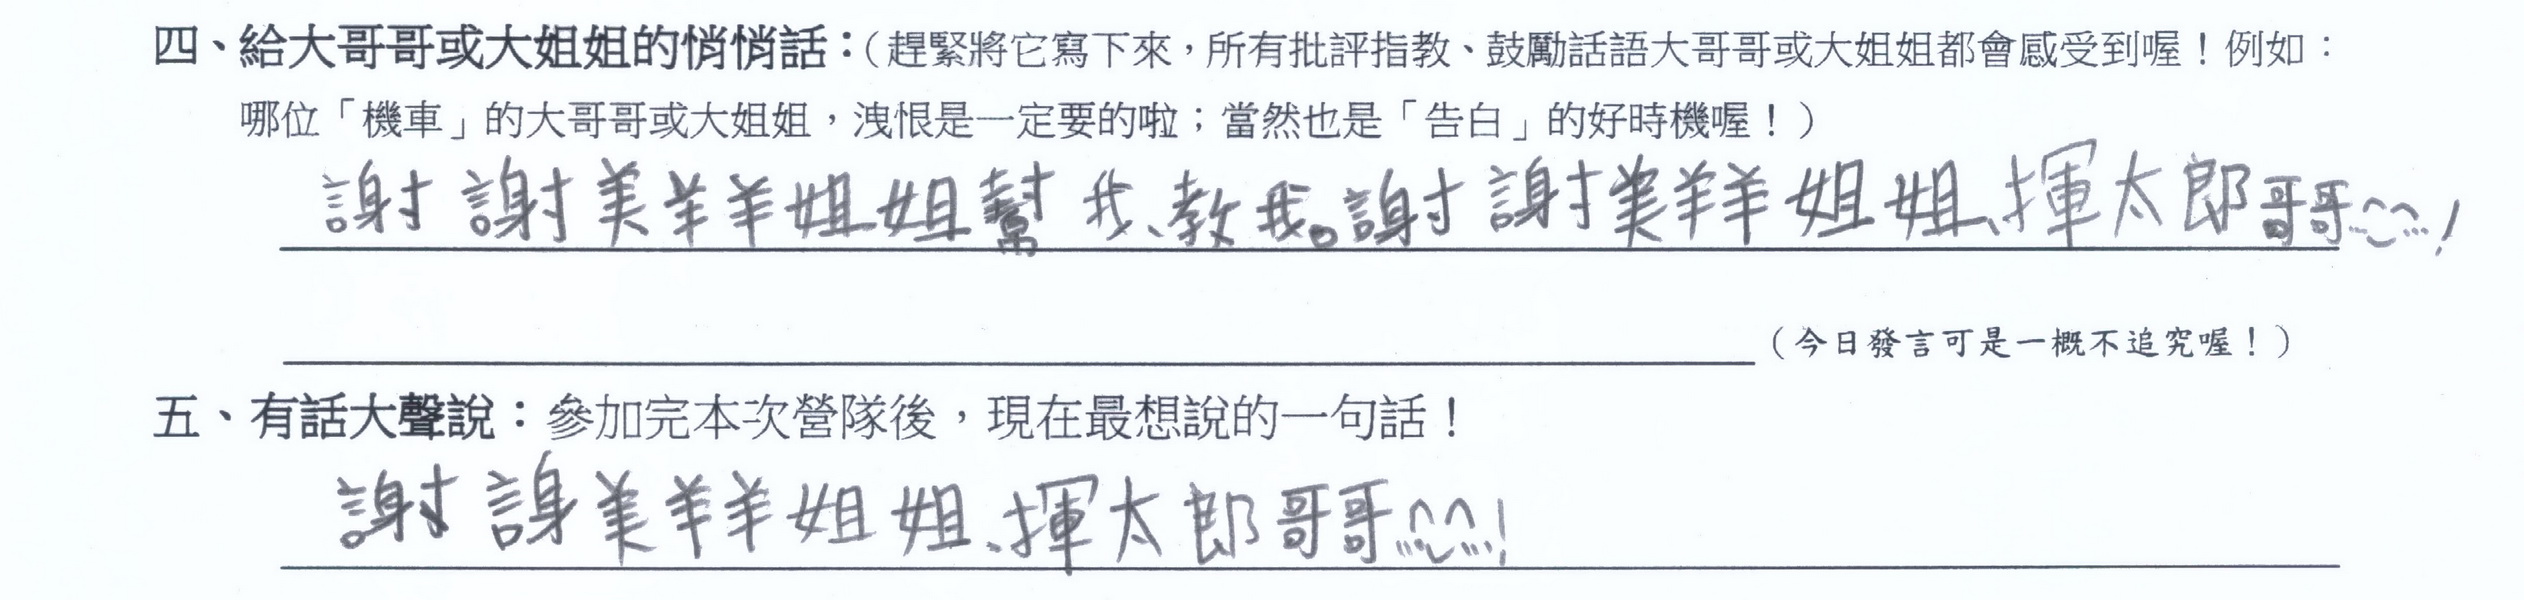 四、給大哥哥或大姐姐的悄悄話：（趕緊將它寫下來，所有批評指教、鼓勵話語大哥哥或大姐姐都會感受到喔！例如：
哪位「機車」的大哥哥或大姐姐，洩恨是一定要的啦；當然也是「告白」的好時機喔！）
謝謝美羊羊姐姐幫我、教我。謝謝美羊羊姐姐、揮太郎哥哥^^!
（今日發言可是一概不追究喔！）
五、有話大聲說：參加完本次營隊後，現在最想說的一句話！
謝謝美羊羊姐姐、揮太郎哥哥^^!